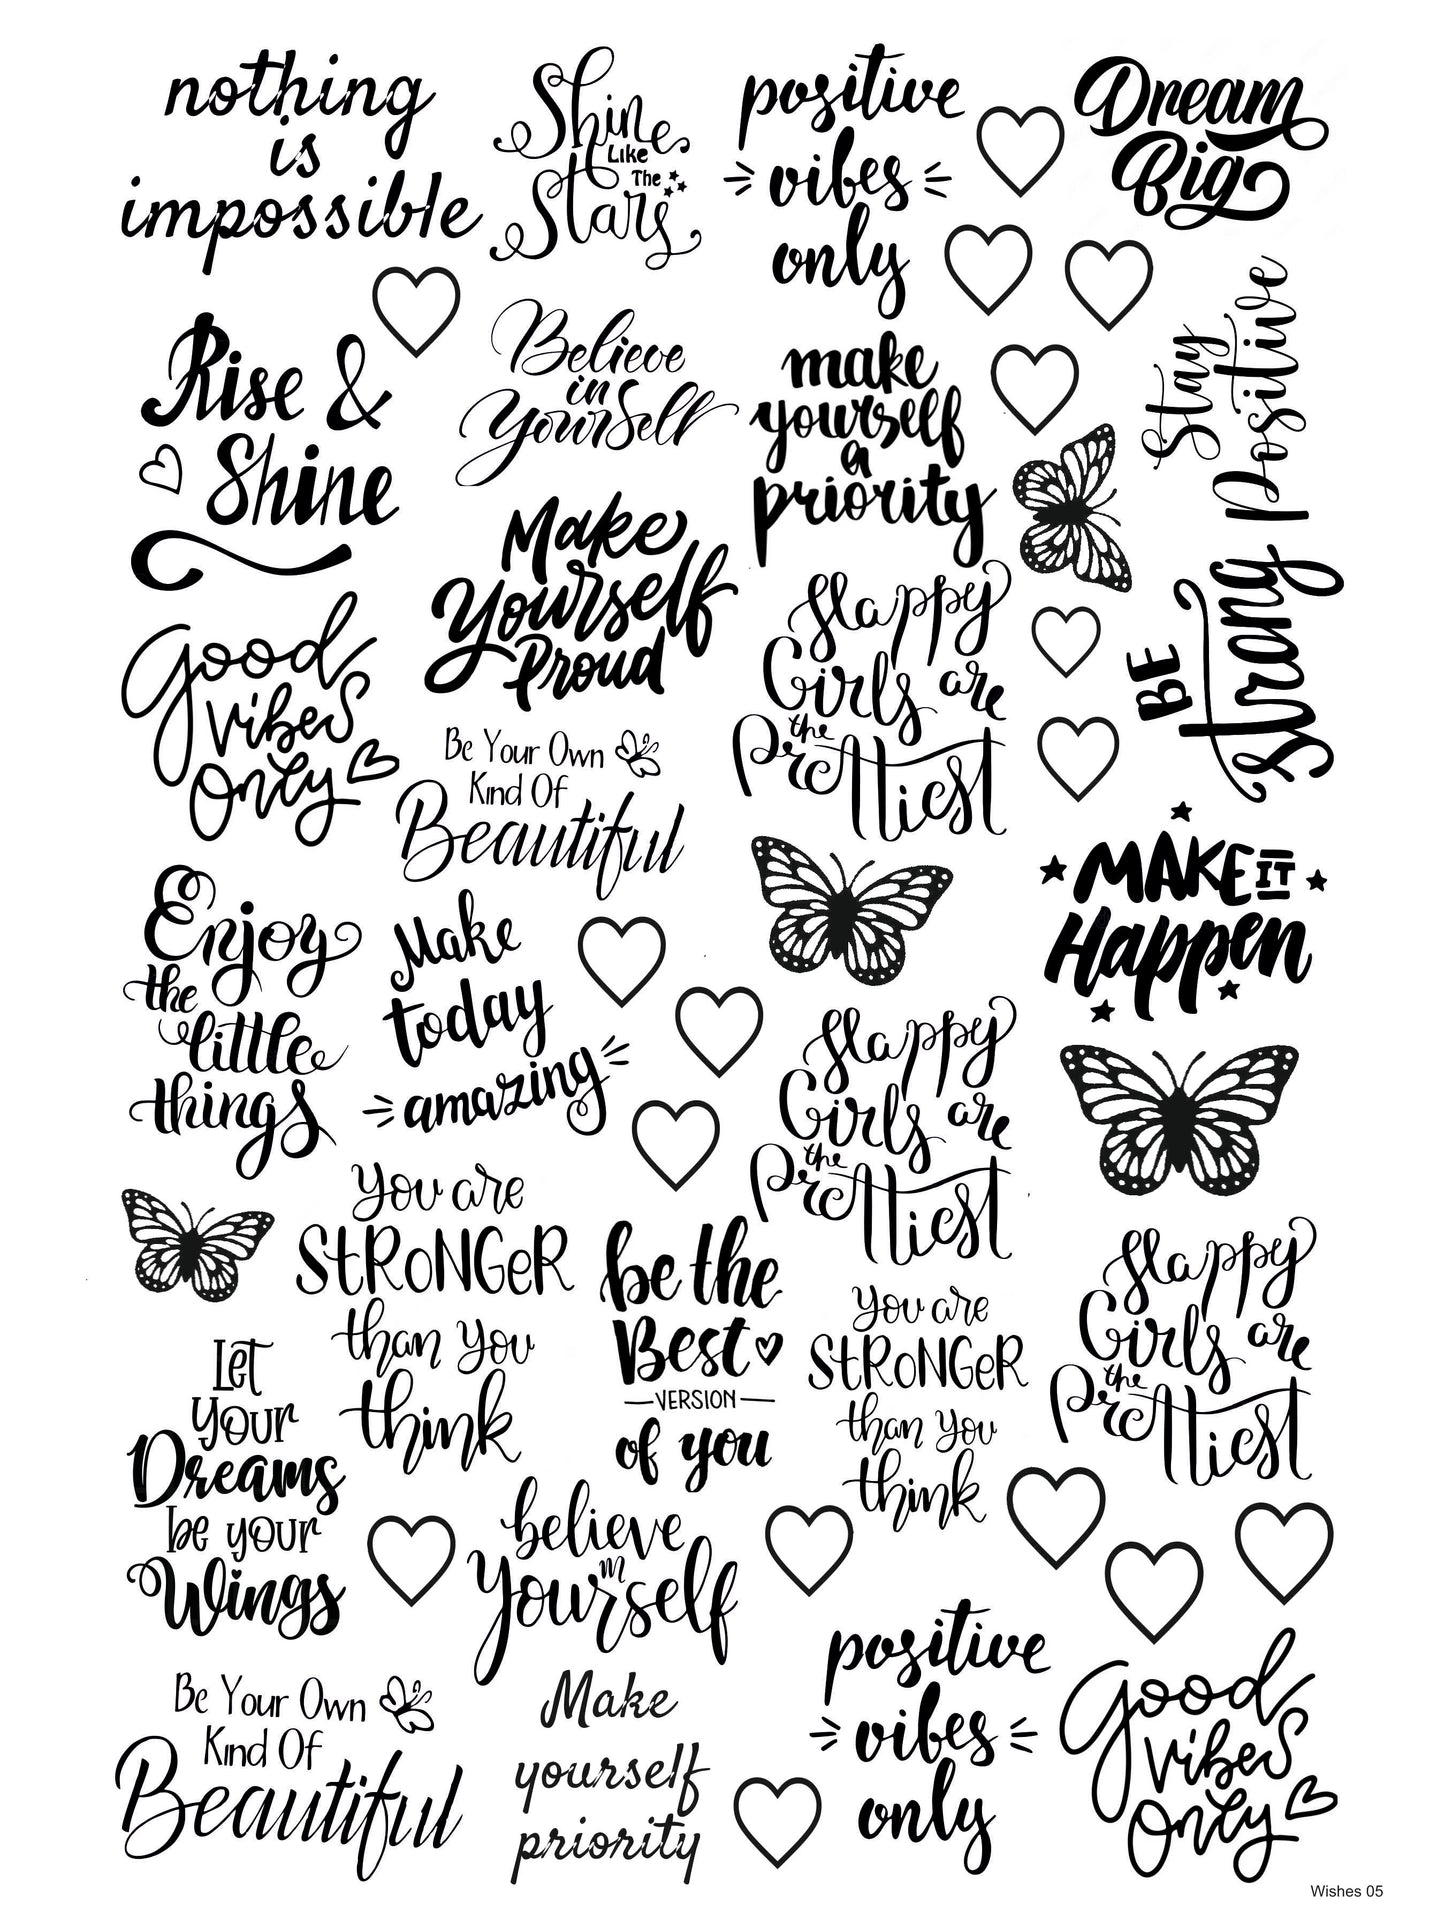 nothing
is
impossible
Shine
Like
The
Stars
positive
vibes
only
Dream
Big
Rise &
Shine
Believe
in
Yourself
make
yourself
a
priority
Stay
Positive
BE
strong
Make
Yourself
Proud
Good
vibes
only
Be Your Own
Kind Of
Beautiful
Happy
Girls are
the
Prettiest
MAKE IT
Happen
Enjoy
the
little
things
Make
today
amazing
Happy
Girls are
the
Prettiest
You are
STRONGER
than you
think
be the
Best
VERSION
of you
You are
STRONGER
than you
think
Happy
Girls are
the
Prettiest
Let
your
Dreams
be your
Wings
believe
in
Yourself
Be Your Own
Kind Of
Beautiful
Make
yourself
priority
positive
vibes
only
Good
vibes
only
Wishes 05